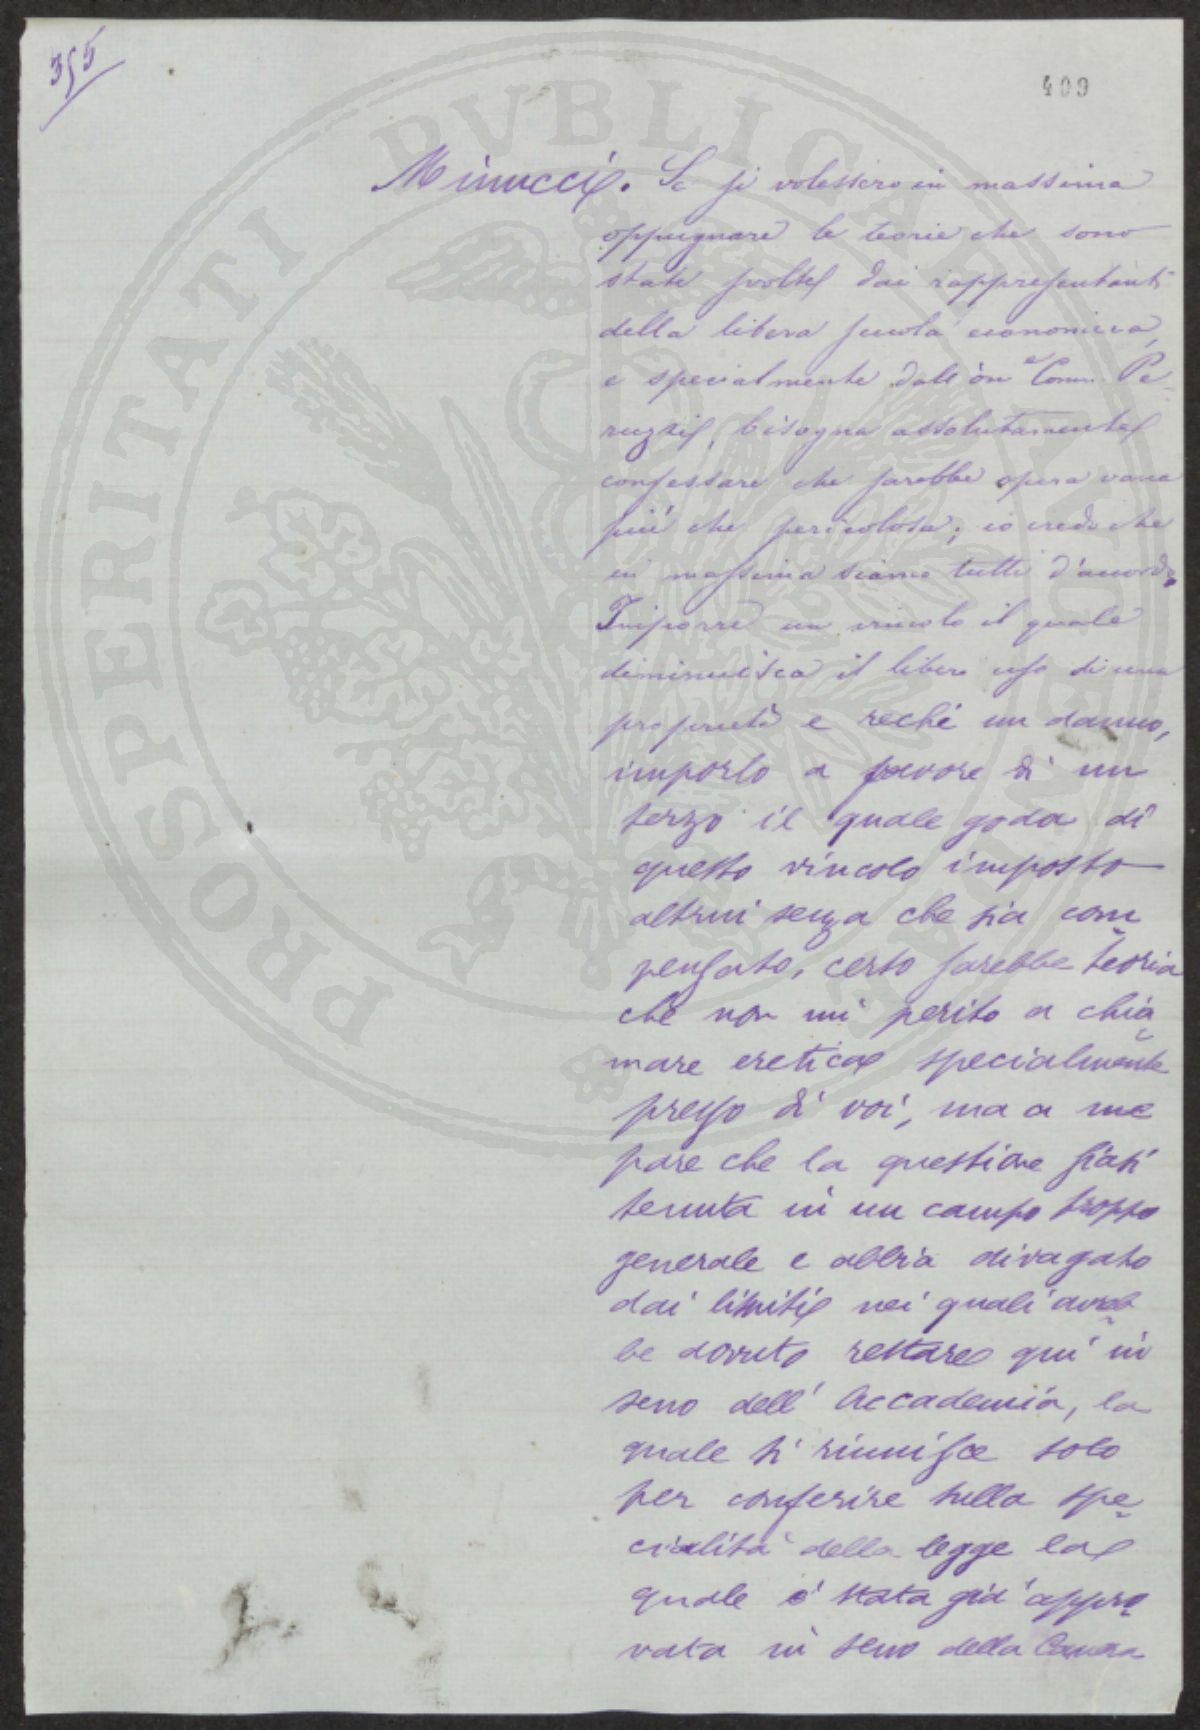 355
409
Minucci. Se si volessero in massima
oppugnare le teorie che sono
state svolte dai rappresentanti
della libera scuola economica,
e specialmente dall'on.e Comm. Pe-
ruzzi, bisogna assolutamente
confessare che sarebbe opera vana
più che pericolosa; io credo che
in massima siamo tutti d'accordo.
Imporre un vincolo il quale
diminuisca il libero uso di una
proprietà e rechi un danno,
imporlo a favore di un
terzo il quale goda di
questo vincolo imposto
altrui senza che sia com-
pensato, certo sarebbe teoria
che non mi perito a chia-
mare eretica specialmente
presso di voi, ma a me
pare che la questione siasi
tenuta in un campo troppo
generale e abbia divagato
dai limiti nei quali avreb-
be dovuto restare qui in
seno dell'Accademia, la
quale si riunisce solo
per conferire sulla spe-
cialità della legge la
quale è stata già appro-
vata in seno della Camera
PROSPERITATI PVBLICAE